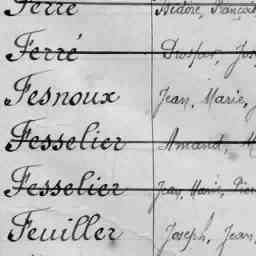 Ferré Isidore, François
Ferré Prosper, Jos
Fesnoux Jean, Marie,
Fesselier Amand, M
Fesselier Jean, Marie, Pier
Feuiller Joseph, Jean,